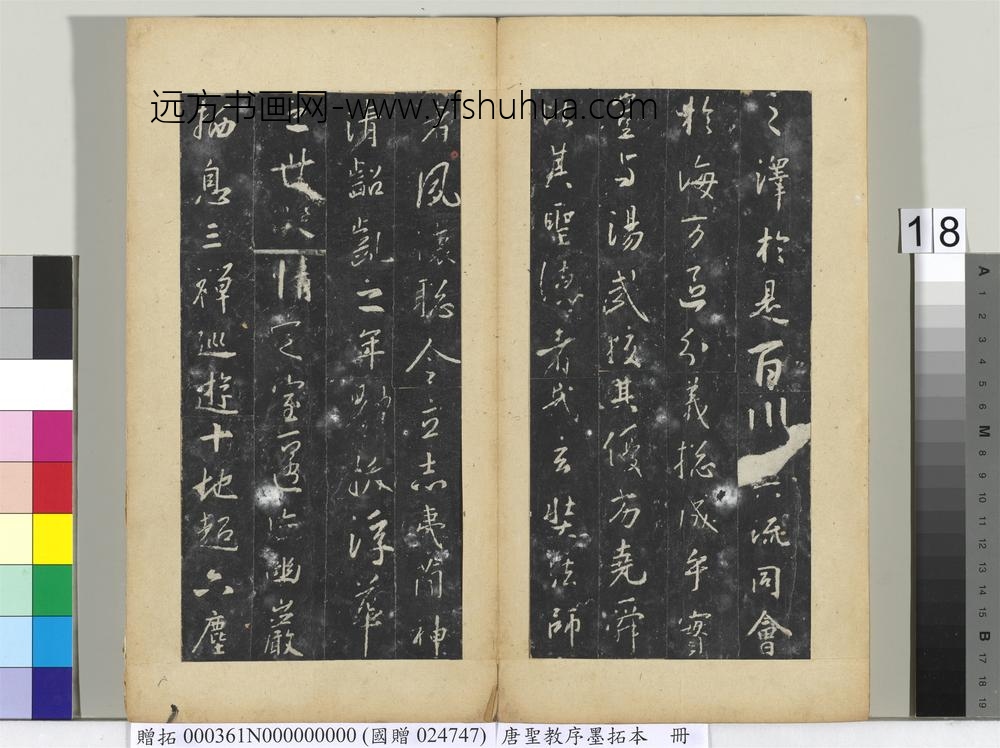 远方书画网-www.yfshuhua.com
之澤於是百川流同會
於海万區分義揔成乎實
豈与湯武校其優劣堯舜
比其聖德者哉玄奘法師
者夙懷聡令立志夷簡神
清齠齔之年體拔浮華
之世凝情定室匿迹幽巖
栖息三禪巡遊十地超六塵
18
A 1 2 3 4 5 6 M 8 9 10 11 12 13 14 15 B 17 18 19
贈拓 000361N000000000 (國贈 024747) 唐聖教序墨拓本 冊